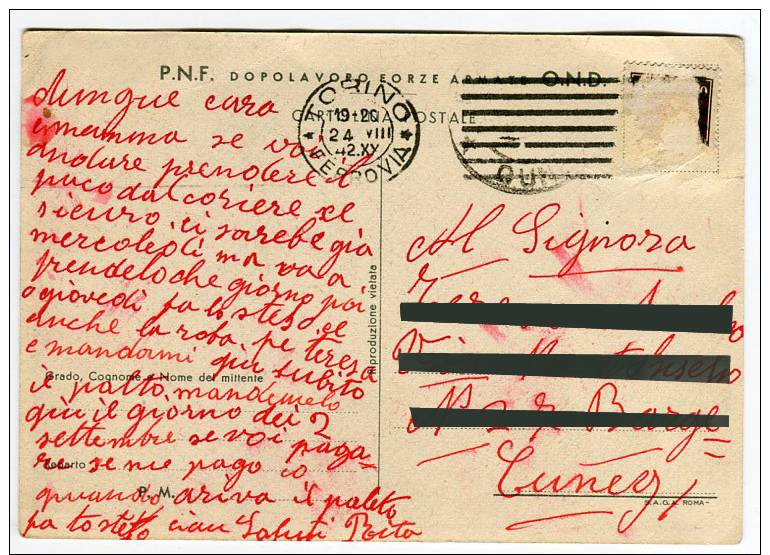 P.N.F. DOPOLAVORO FORZE ARMATE O.N.D.
CARTOLINA POSTALE
TORINO
19-20
24 VIII
42.XX
FERROVIA
dunque cara
mamma se vai
andare prendere il
paco dal coriere xe
sicuro. ci sarebe già
mercoledi ma va a
prendelo che giorno poi
o giovedi fa lo steso, e
anche la roba pe teresa
e mandami giu subito
il palto, mandemelo
giu il giorno dei 2
settembre se voi paga-
re se me pago io
quando ariva il paleto
fa lo steso ciau Saluti
Grado, Cognome e Nome del mittente
Reparto
P. M.
Riproduzione vietata
Al Signora
N° 27 Barge
Cuneo
S.A.G.A. ROMA